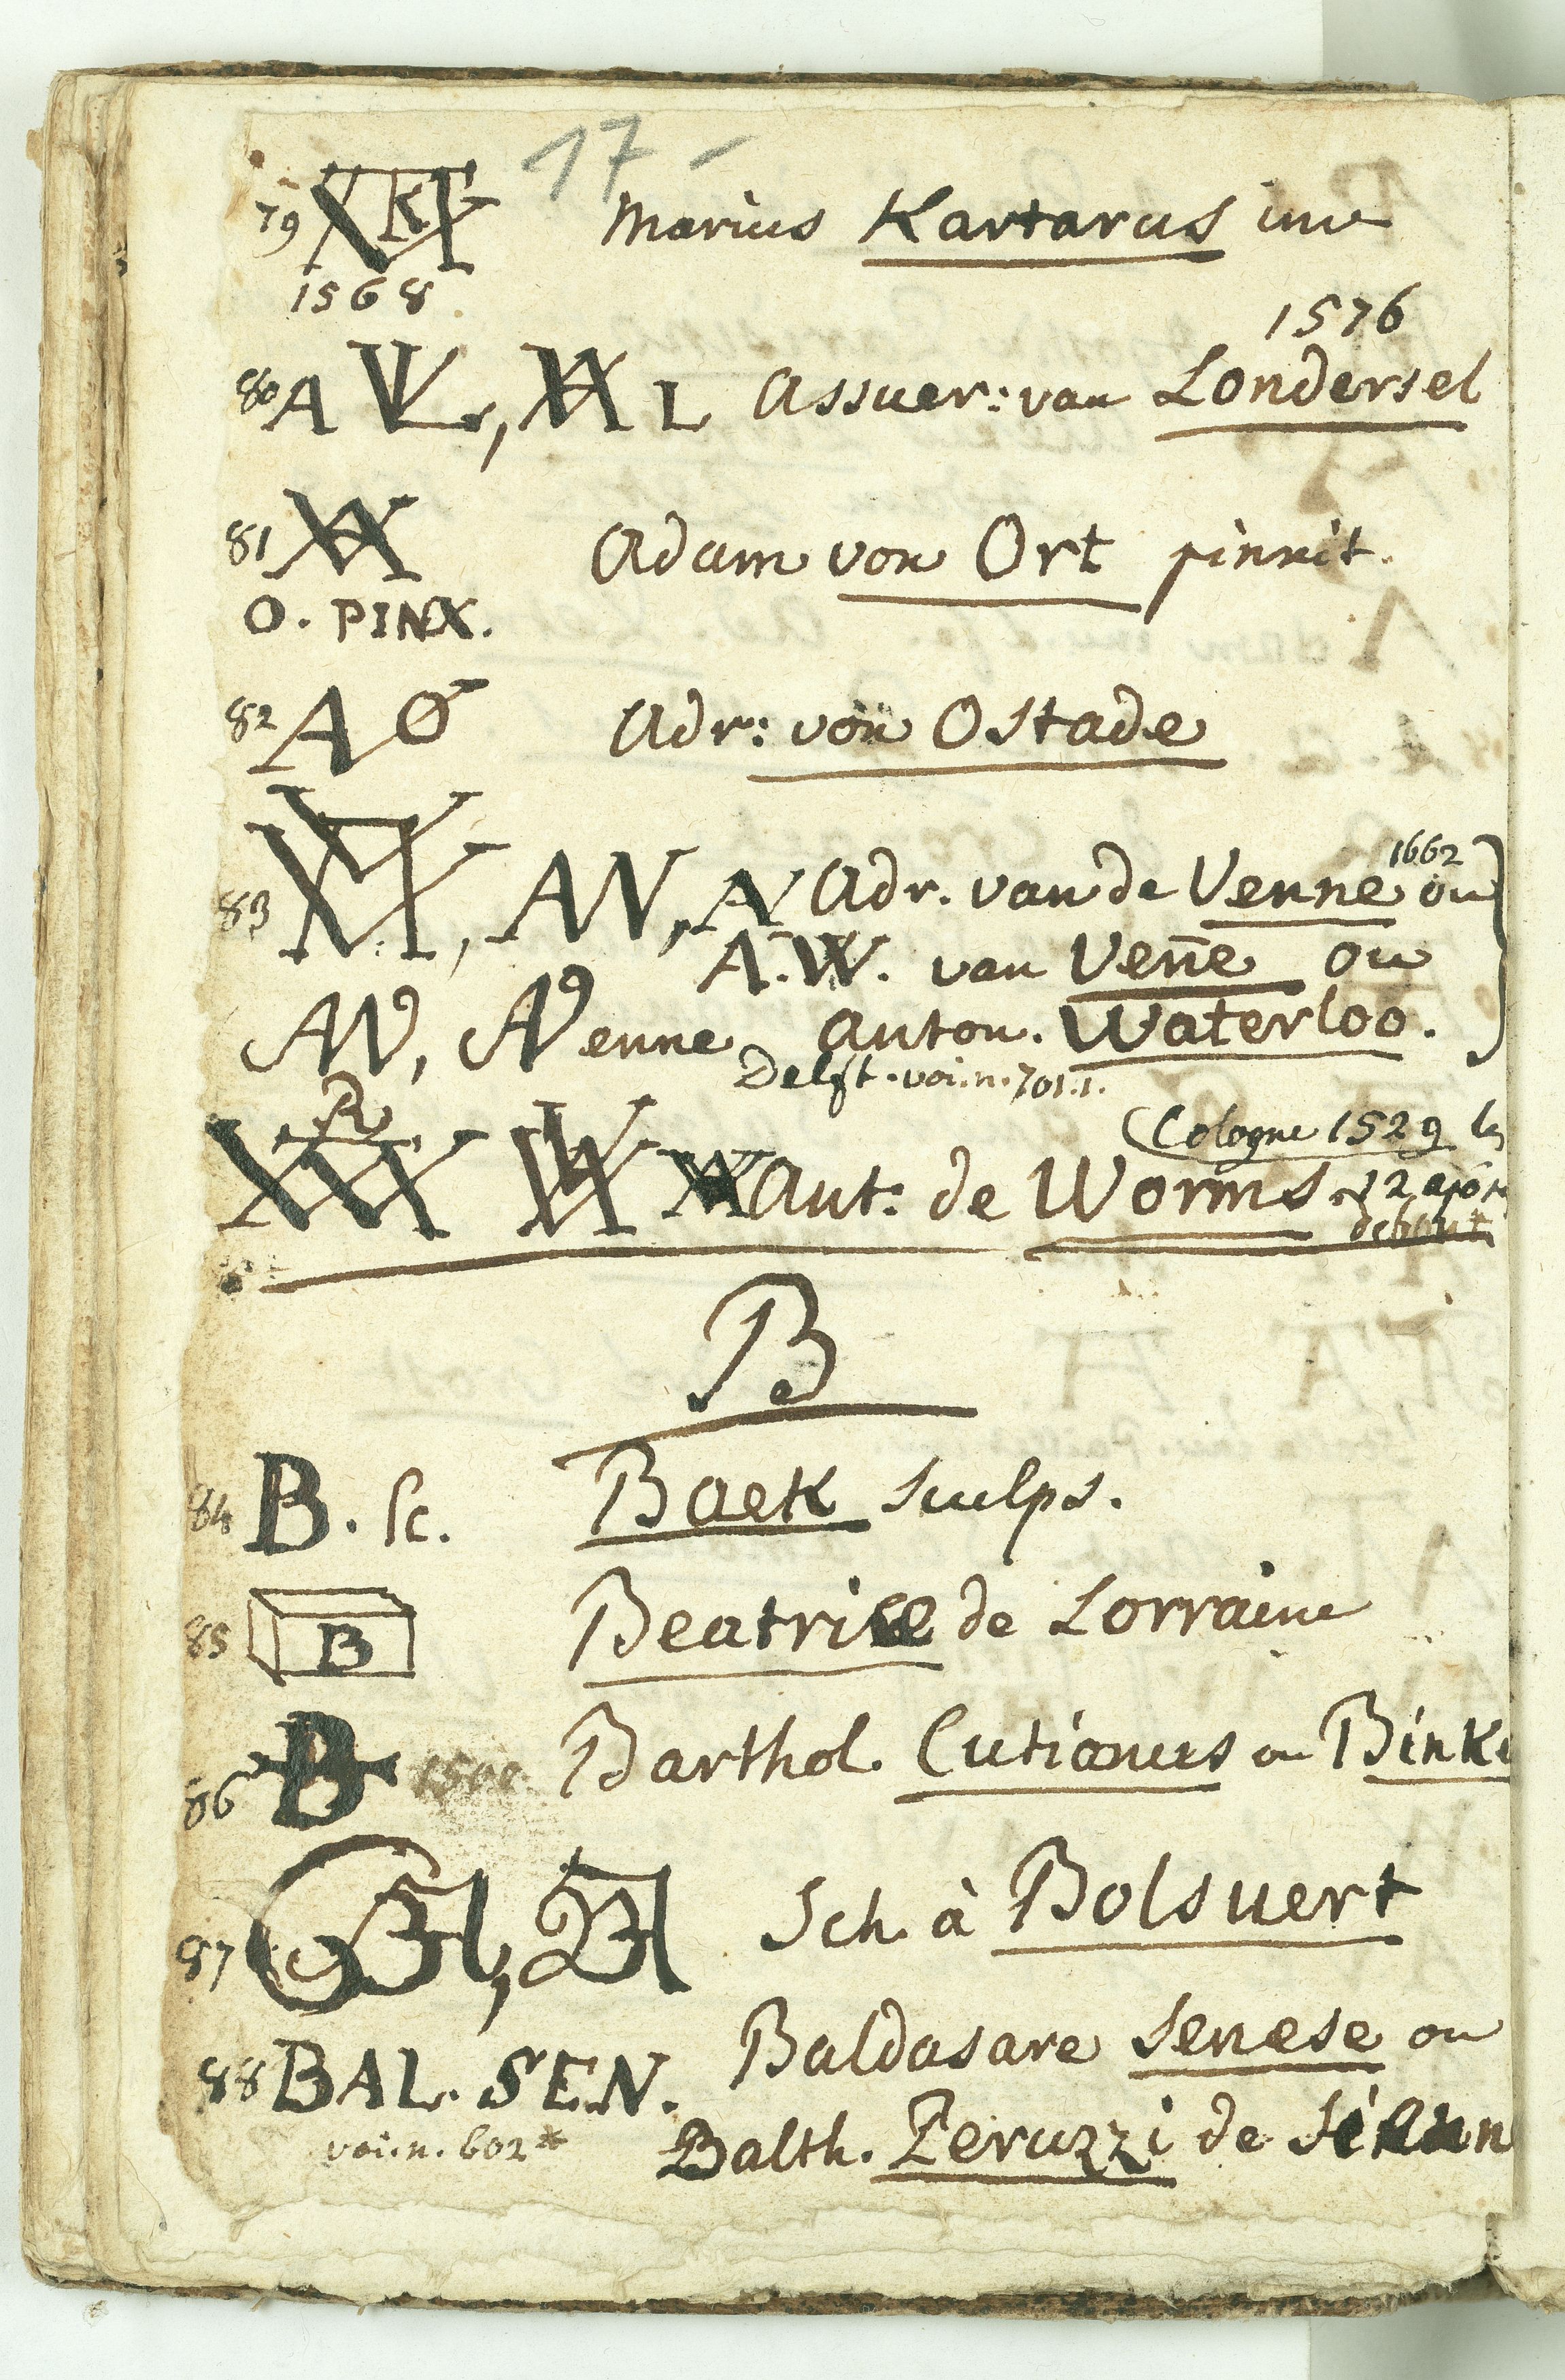 17 -
79 Marius Kartarus inv
1568
1576
80 A VL, L Assuer: van Londersel
81 Adam von Ort pinxit.
O. PINX.
82 AO Adr: von Ostade
1662
83 AV, AV Adr. van de Venne ou
A.W. van Vene ou
AV, AVenne Anton. Waterloo.
Delft. voi. n. 701.1.
Cologne 1529 les
Ant: de Worms 12 apo
debout
B
84 B. sc. Baek sculps.
85 B Beatrice de Lorraine
86 B 1500 Barthol. Cutianus ou Binke
87 Sch. à Bolsuert
88 BAL. SEN. Baldasare Senese ou
voi. n. 602* Balth. Peruzzi de